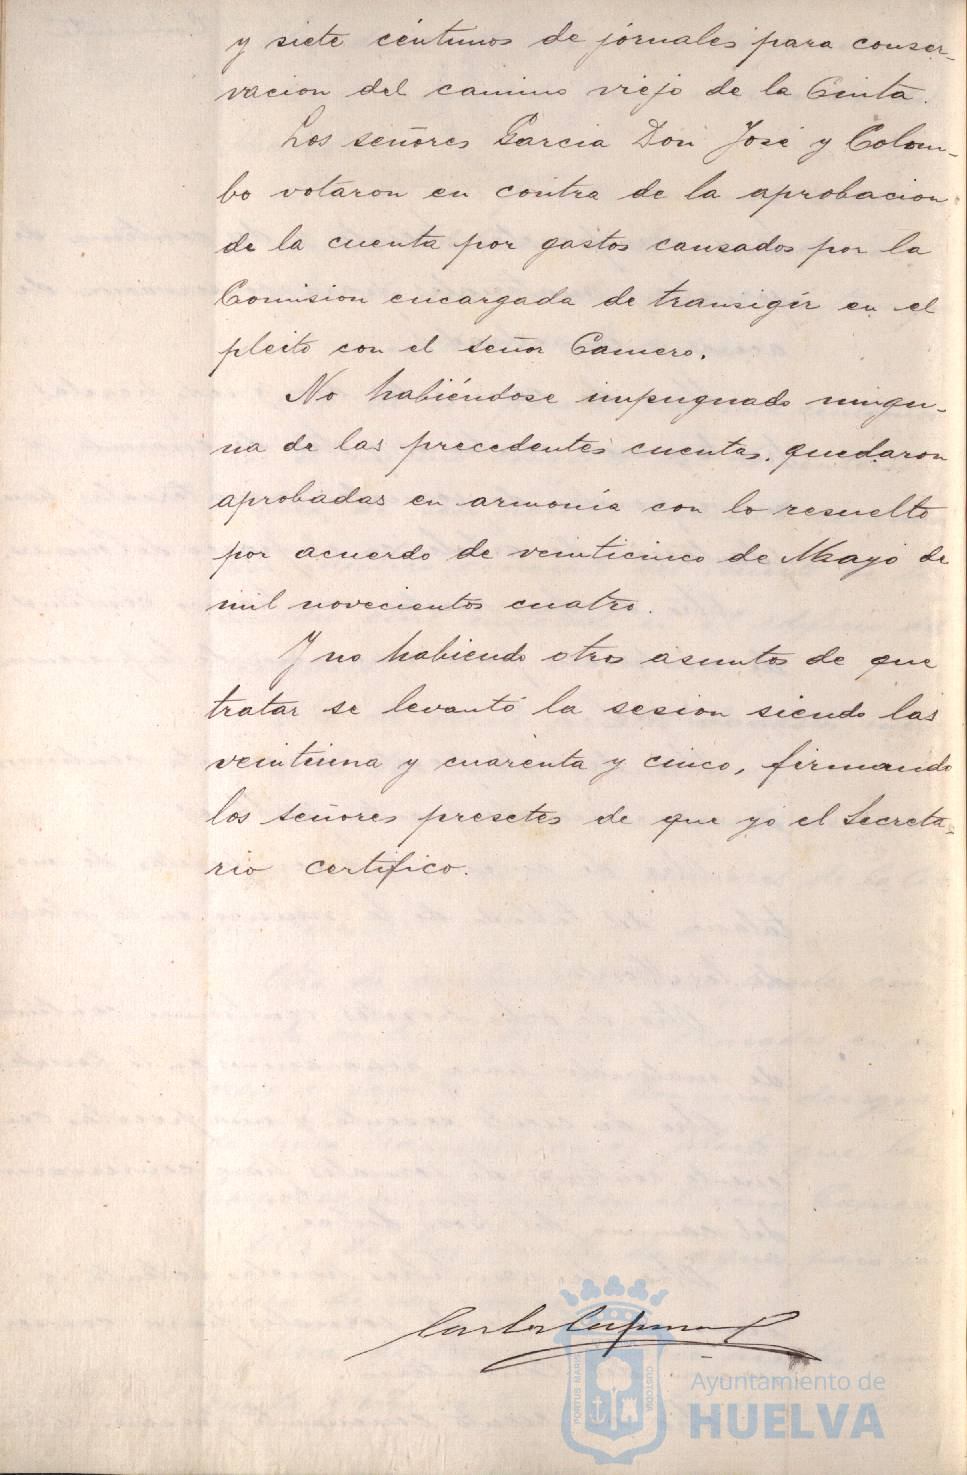 y siete céntimos de jornales para conser-
vacion del camino viejo de la Cinta.
Los señores Garcia Don José y Colom-
bo votaron en contra de la aprobacion
de la cuenta por gastos causados por la
Comision encargada de transigir en el
pleito con el señor Camero.
No habiéndose impugnado ningu-
na de las precedentes cuentas, quedaron
aprobadas en armonía con lo resuelto
por acuerdo de veinticinco de Mayo de
mil novecientos cuatro.
Y no habiendo otros asuntos de que
tratar se levantó la sesion siendo las
veintiuna y cuarenta y cinco, firmando
los señores presetes de que yo el Secreta-
rio certifico.
Carlos
PORTUS MARIS
CUSTODIA
Ayuntamiento de
HUELVA